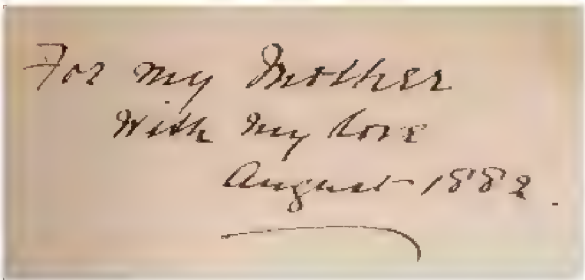 For my Mother
With my love
August 1882.